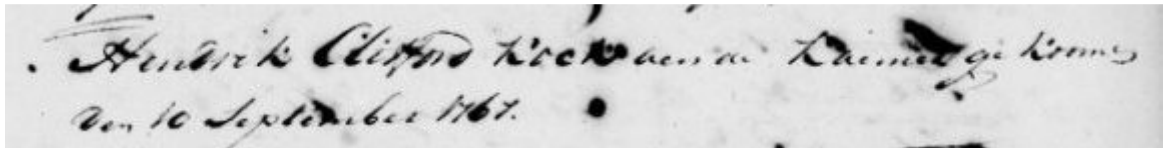 Hendrik Clifford Kock aen de Kaemer gekomen
den 10 September 1767.